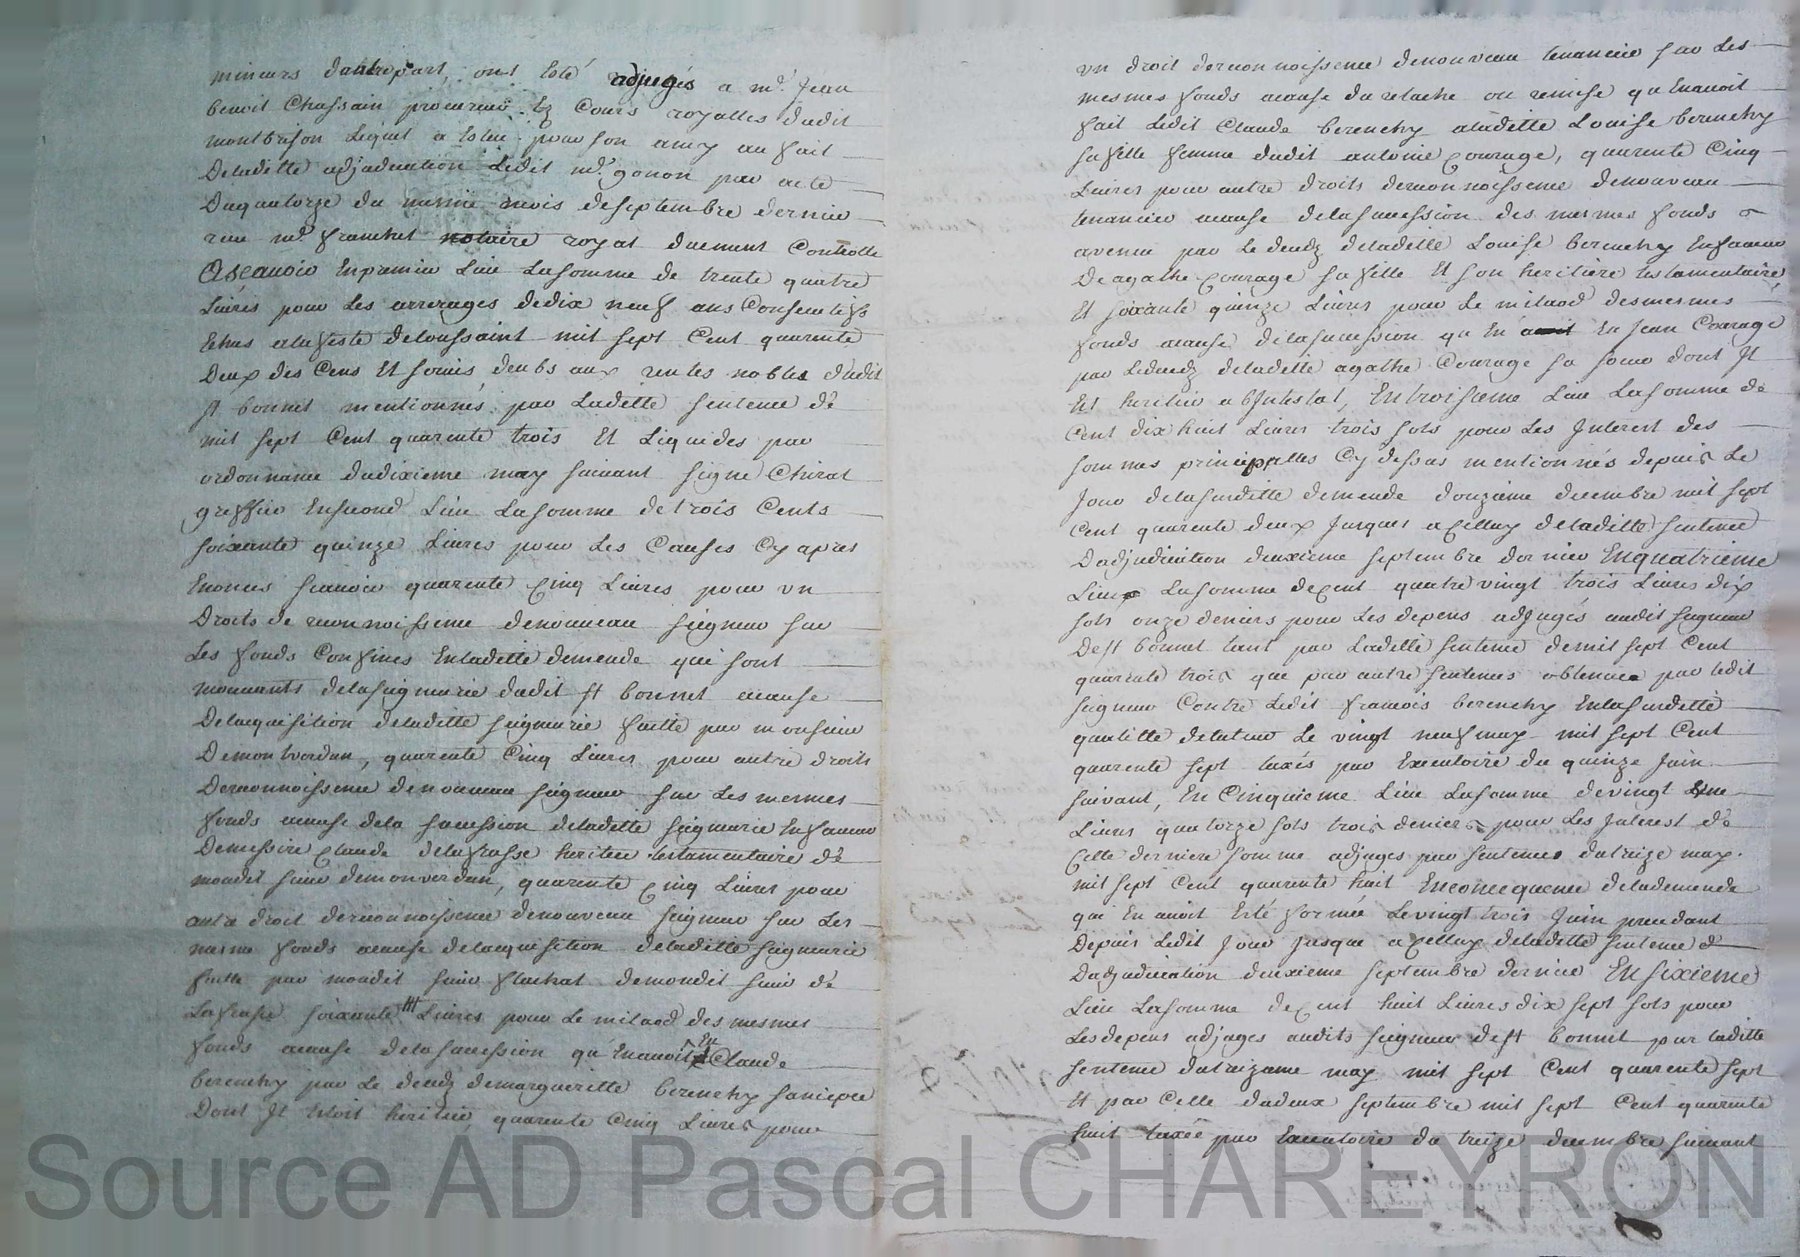 mineurs dautrepart, ont esté adjugés a me. Jean
benoit Chassain procureur ez Cours royalles dudit
montbrison Lequel a Esleu pour son amy au fait
Deladitte adjudication Ledit me. gonon par acte
Duquatorze du mesme mois deseptembre dernier
receu me. franchet notaire royal duement Controllé
Ascavoir Enpremier Lieu Lasomme de trente quatre
Livres pour Les arrerages dedix neuf ans Consecutifs
Echus alafeste detoussaint mil sept Cent quarente
Deux des Cens Et servis deubs aux rentes nobles dudit
st bonnet mentionnés par Laditte sentence de
mil sept Cent quarente trois Et Liquides par
ordonnance dudixieme may suivant signé Chirat
greffier Ensecond Lieu Lasomme detrois Cents
soixante quinze Livres pour Les Causes Cy apres
Enoncés scavoir quarente Cinq Livres pour un
Droits de reconnoissence denouveau seigneur sur
Les fonds Confinés Enladitte demende qui sont
mouvants delaseigneurie dudit st bonnet acause
Delacquisition deladitte seigneurie faitte par monsieur
Demontverdun, quarente Cinq Livres pour autre droits
Dereconnoissence denouveau seigneur sur Les mesmes
fonds acause dela sucession deladitte seigneurie Enfaveur
Demessire Claude delafrasse heritier testamentaire de
mondit sieur demonverdun, quarente Cinq Livres pour
autre droit dereconnoissence denouveau seigneur sur Les
mesme fonds acause delacquisition deladitte seigneurie
faitte par mondit sieur flachat demondit sieur de
Lafrasse soixante Livres pour Le milaod desmesmes
fonds acause delasucession qu'Enavoit Eu Claude
berenchy par Le decedz demargueritte berenchy saniepce
Dont Jl Estoit heritier, quarente Cinq Livres pour
un droit dereconnoissence denouveau tenancier sur Les
mesmes fonds acause du relache ou remise qu'Enavoit
fait Ledit Claude berenchy aladitte Louise berenchy
safille femme dudit antoine Courage, quarente Cinq
Livres pour autre droits dereconnoissence denouveau
tenancier acause delasucession des mesmes fonds
avenue par Le decedz deladitte Louise berenchy Enfaveur
De agathe Courage sa fille Et son heritiere testamentaire
Et soixante quinze Livres pour Le milaod desmesmes
fonds acause delasucession qu'En Eu Jean Courage
par Ledecedz deladitte agathe Courage sa soeur dont Jl
Est heritier abJntestat, Entroisieme Lieu Lasomme de
Cent dix huit Livres trois sols pour Les Jnterest des
sommes principalles Cy dessus mentionnés depuis Le
Jour delasusditte demende douzieme decembre mil sept
Cent quarente deux Jusques aCelluy deladitte sentence
Dadjudication deuxieme septembre dernier Enquatrieme
Lieu Lasomme deCent quatrevingt trois Livres dix
sols onze deniers pour Les depens adjugés audit seigneur
Dest bonnet tant par Laditte sentence demil sept Cent
quarente trois que par autre sentences obtenuee par Ledit
seigneur Contre Ledit francois berenchy Enlasusditte
quallitté detuteur Le vingt neuf may mil sept Cent
quarente sept taxés par Executoire du quinze Juin
suivant, En Cinquieme Lieu Lasomme devingt Une
Livres quatorze sols trois deniers pour Les Jnterest de
Celle derniere somme adjugés par sentences dutreize may
mil sept Cent quarente huit Enconcequence delademende
qui En avoit Esté formée Levingt trois Juin precedant
Depuis Ledit Jour Jusque aCelluy deladitte sentence
Dadjudication deuxieme septembre dernier Ensixieme
Lieu Lasomme deCent huit Livres dix sept sols pour
Lesdepens adjugés audits seigneur dest bonnet par laditte
sentence dutreizieme may mil sept Cent quarente sept
Et par Celle dudeux septembre mil sept Cent quarente
huit taxée par Executoire du treize decembre suivant
Source AD Pascal CHAREYRON